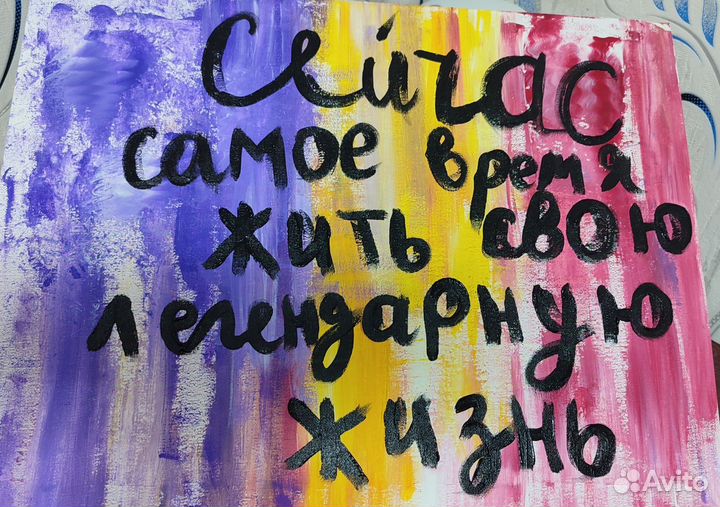 Сейчас
самое время
жить свою
легендарную
жизнь
Avito